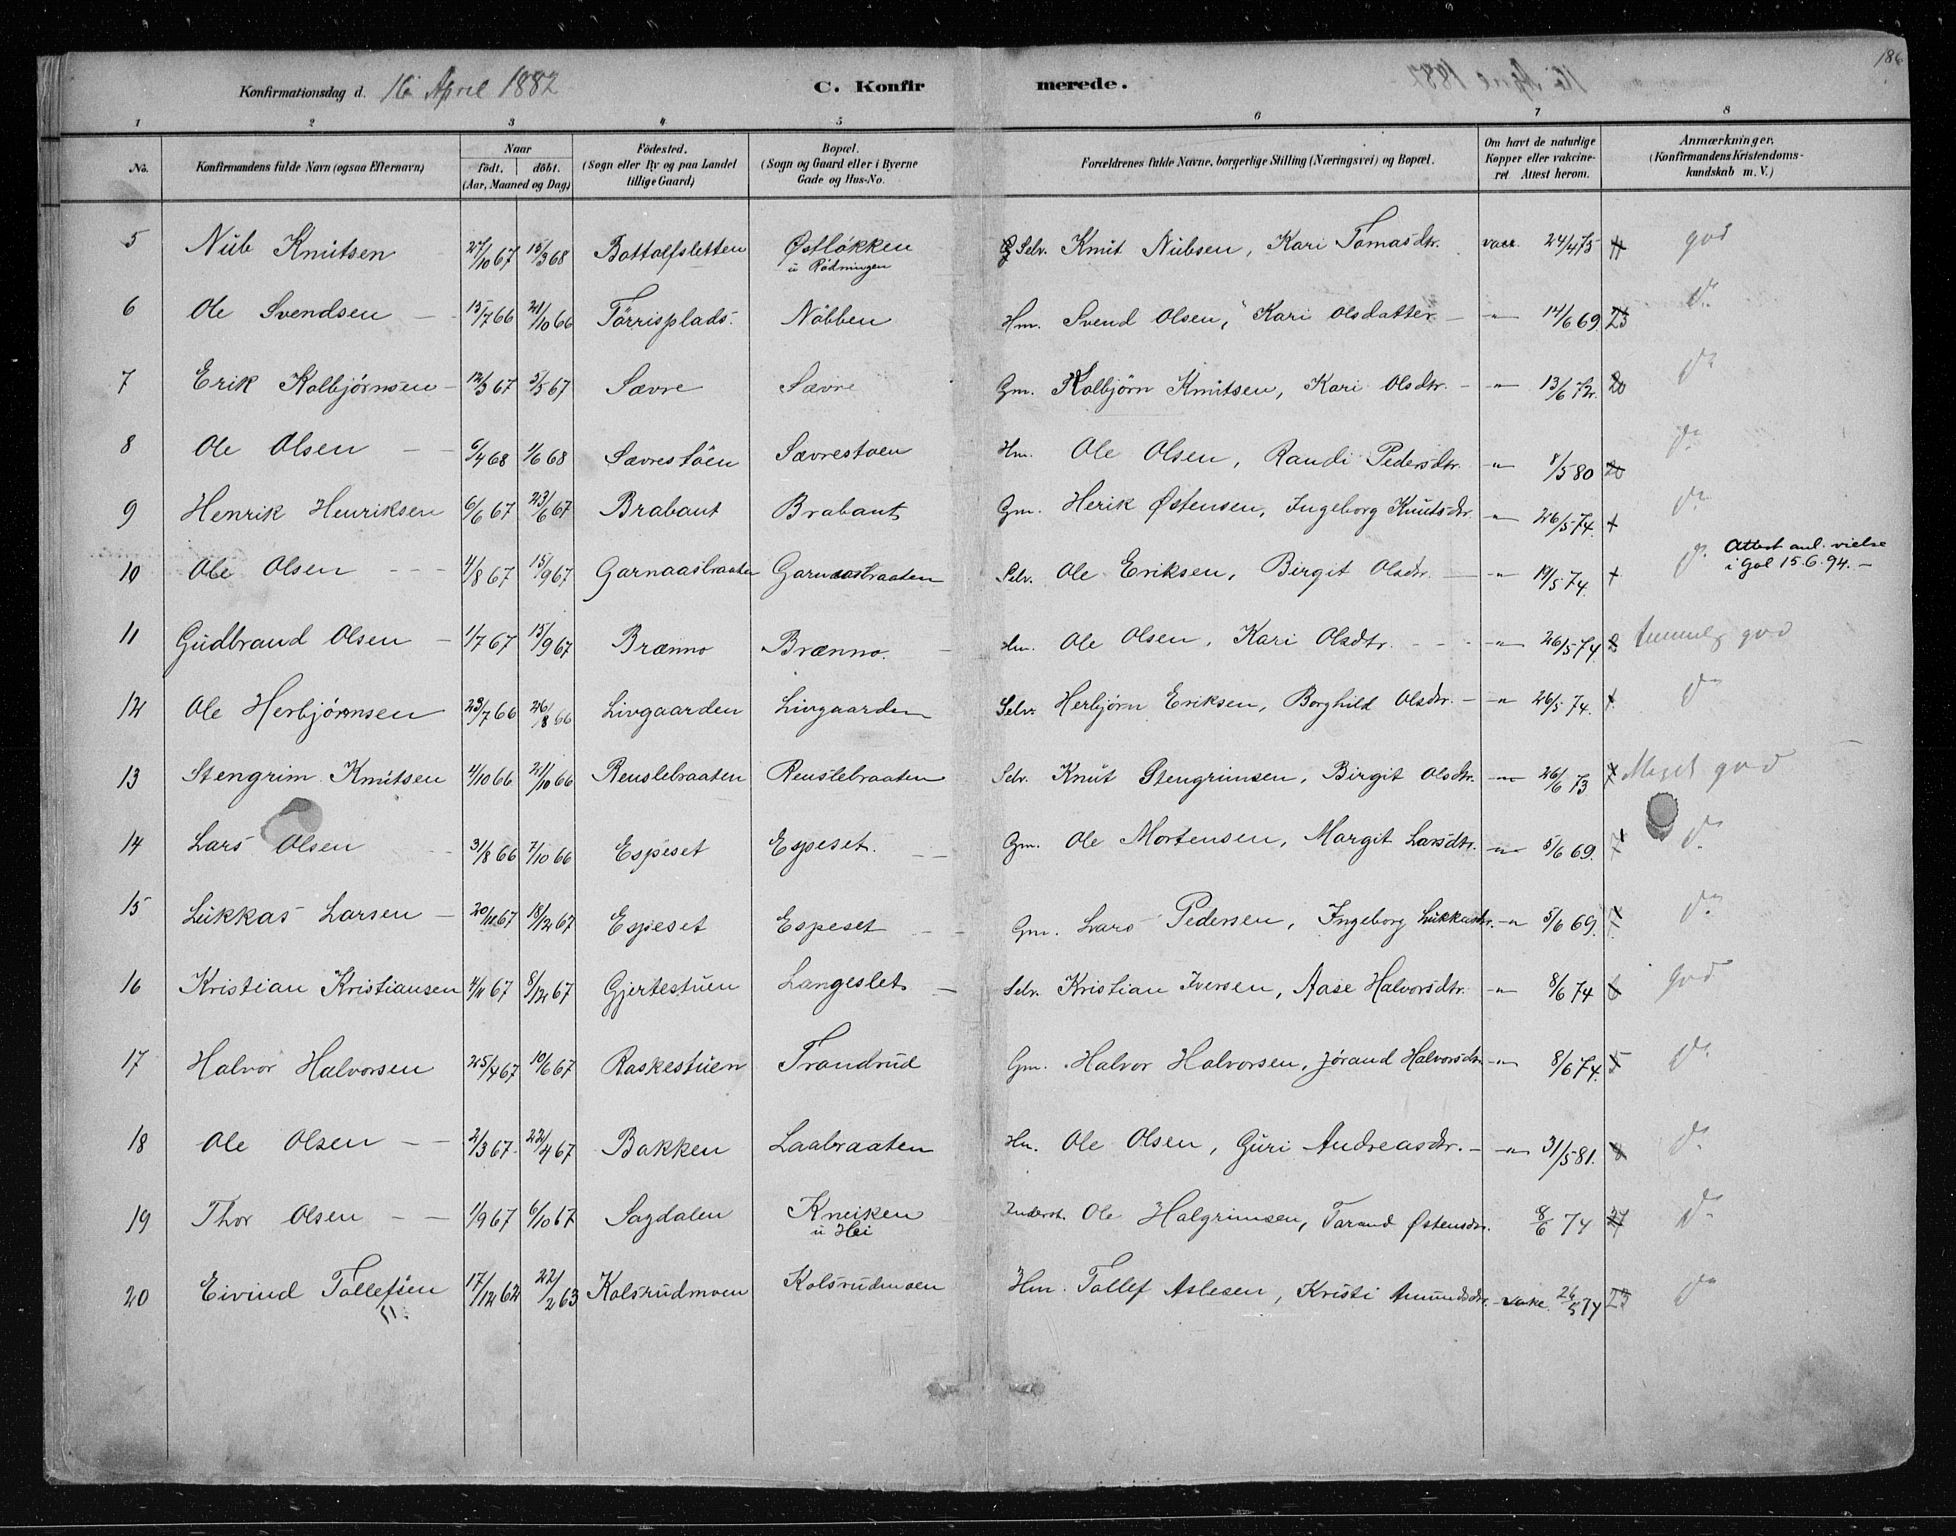 186
Konfirmationsdag d. 16 April 1882 C. Konfirmerede.
1 2 3 4 5 6 7 8
No. Konfirmandens fulde Navn (ogsaa Efternavn) Naar födt. döbt. (Aar, Maaned og Dag) Födested. (Sogn eller By og paa Landet tillige Gaard) Bopæl. (Sogn og Gaard eller i Byerne Gade og Hus-No. Forældrenes fulde Navne, borgerlige Stilling (Næringsvei) og Bopæl. Om havt de naturlige Kopper eller vakcineret Attest herom. Anmærkninger. (Konfirmandens Kristendomskundskab m. V.)
5 Nub Knutsen 27/10 67 15/3 68 Bottolfsletten Østløkken u Rødningen Selv. Knut Nubsen, Kari Tomasdtr. vacc. 24/4 75 god
6 Ole Svendsen 15/7 66 21/10 66 Tørrisplads. Nøbben Hm. Svend Olsen, Kari Olsdatter - " - 14/6 69. 23 do
7 Erik Kolbjørnsen 12/3 67 5/5 67 Sævre Sævre Gm. Kolbjørn Knutsen, Kari Olsdtr. - " - 13/6 72. 20 do
8 Ole Olsen 6/4 68 1/6 68 Sævrestøen Sævrestoen Hm. Ole Olsen, Randi Pedersdtr. " 8/5 80 20 do
9 Henrik Henriksen 6/6 67 23/6 67 Brabant Brabant Gm. Herik Østensen, Ingeborg Knutsdtr. " 26/5 74. + do
10 Ole Olsen 4/8 67 15/9 67 Garnaasbraaten Garnaasbraaten Selv. Ole Eriksen, Birgit Olsdtr. " 19/5 74. + do Attest anl. vielse i Gol 15.6.94. -
11 Gudbrand Olsen 1/7 67 15/9 67 Brænno Brænno. Hm. Ole Olsen, Kari Olsdtr. - " - 26/5 74. temmelig god
12 Ole Herbjørnsen 23/7 66 26/8 66 Livgaarden Livgaarden Selv. Herbjørn Eriksen, Borghild Olsdtr. - " 26/5 74. +. do
13 Stengrim Knutsen 4/10 66 21/10 66 Renslebraaten Renslebraaten Selv. Knut Stengrimsen, Birgit Olsdtr. - " - 26/6 73 7 Meget god
14 Lars Olsen 31/8 66 7/10 66 Espeset Espeset. Gm. Ole Mortensen, Margit Larsdtr. - " - 5/6 69. 7 do
15 Lukkas Larsen 20/11 67 18/12 67 Espeset Espeset Gm. Lars Pedersen, Ingeborg Lukkasdtr. - " 5/6 69. 7 do
16 Kristian Kristiansen 4/11 67 8/12 67 Gjertestuen Langeslet Selv. Kristian Iversen, Aase Halvorsdtr. - " - 8/6 74 6 god
17 Halvor Halvorsen 25/4 67 10/6 67 Raskestuen Trandrud Gm. Halvor Halvorsen, Jørand Halvorsdtr. " 8/6 74. 5 do
18 Ole Olsen 2/3 67. 22/4 67 Bakken Laabraaten Hm. Ole Olsen, Guri Andreasdtr. - " - 31/5 81. do
19 Thor Olsen 1/9 67 6/10 67 Sagdalen Kneiken u Hei Inderst. Ole Halgrimsen, Tarand Østensdtr. 8/6 74 do
20 Eivind Tollefsen 17/12 62 22/2 63 Kolsrudmoen Kolsrudmoen Hm. Tollef Aslesen, Kristi Amundsdtr. vake. 26/5 74 23 do